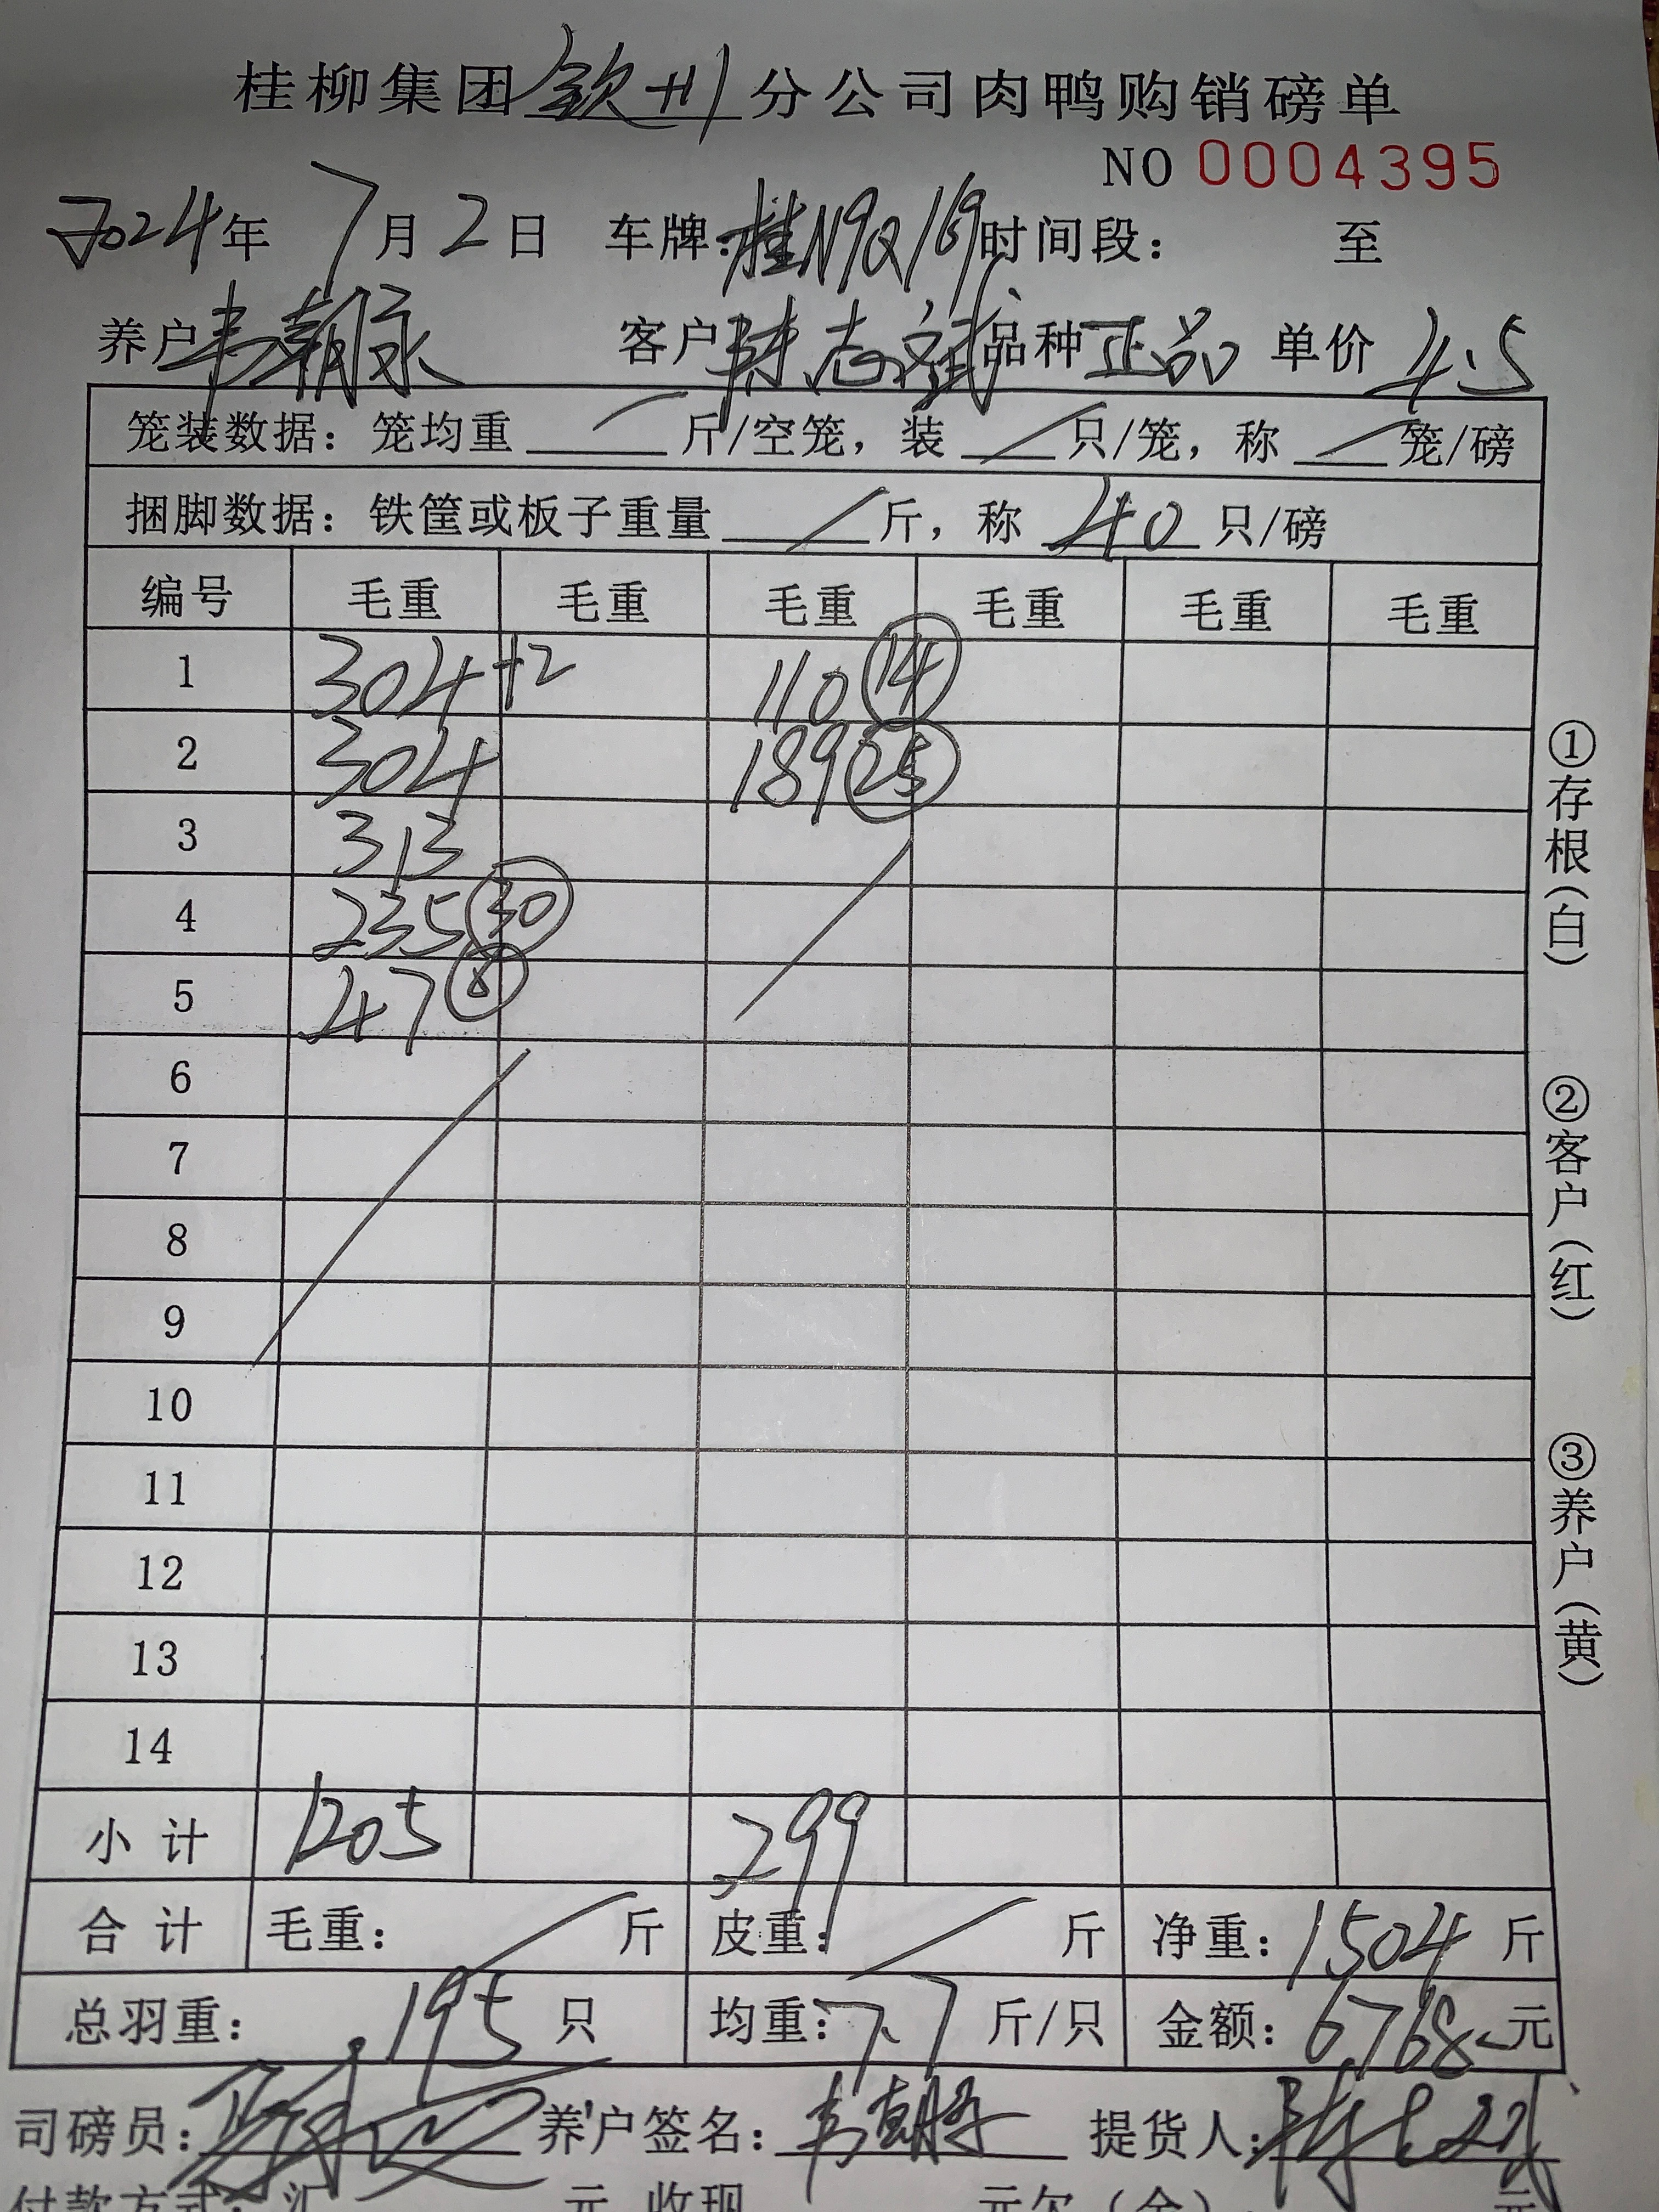 桂柳集团钦州分公司肉鸭购销磅单
NO 0004395
2024年 7月2日 车牌:桂N9Q169时间段: 至
养户韦朝永 客户陈志斌品种正品 单价4.5
笼装数据: 笼均重 / 斤/空笼, 装 / 只/笼, 称 / 笼/磅
捆脚数据: 铁筐或板子重量 / 斤, 称 40 只/磅
编号 毛重 毛重 毛重 毛重 毛重 毛重
1 304+2 110 14
2 304 189 25
3 313
4 235 30
5 47
6
7
8
9
10
11
12
13
14
小 计 1205 299
合 计 毛重: / 斤 皮重: / 斤 净重: 1504 斤
总羽重: 195 只 均重: 7.7 斤/只 金额: 6768 元
司磅员: 养户签名: 韦朝 提货人: 陈志斌
付款方式: 汇 元 收现 元欠(余): 元
①存根(白)
②客户(红)
③养户(黄)